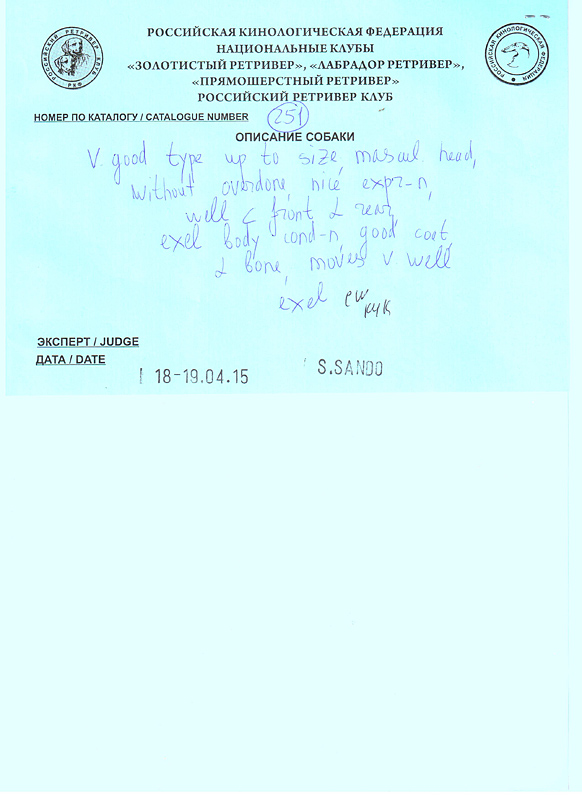 РОССИЙСКАЯ КИНОЛОГИЧЕСКАЯ ФЕДЕРАЦИЯ
НАЦИОНАЛЬНЫЕ КЛУБЫ
«ЗОЛОТИСТЫЙ РЕТРИВЕР», «ЛАБРАДОР РЕТРИВЕР»,
«ПРЯМОШЕРСТНЫЙ РЕТРИВЕР»
РОССИЙСКИЙ РЕТРИВЕР КЛУБ
РОССИЙСКИЙ РЕТРИВЕР КЛУБ РКФ
РОССИЙСКАЯ КИНОЛОГИЧЕСКАЯ ФЕДЕРАЦИЯ
НОМЕР ПО КАТАЛОГУ / CATALOGUE NUMBER 251
ОПИСАНИЕ СОБАКИ
V. good type up to size, mascul. head,
without overdone, nice expr-n,
well < front & rear,
exel body cond-n, good coat
& bone, moves v well
exel CW
КЧК
ЭКСПЕРТ / JUDGE
ДАТА / DATE
18-19.04.15 S.SANDO